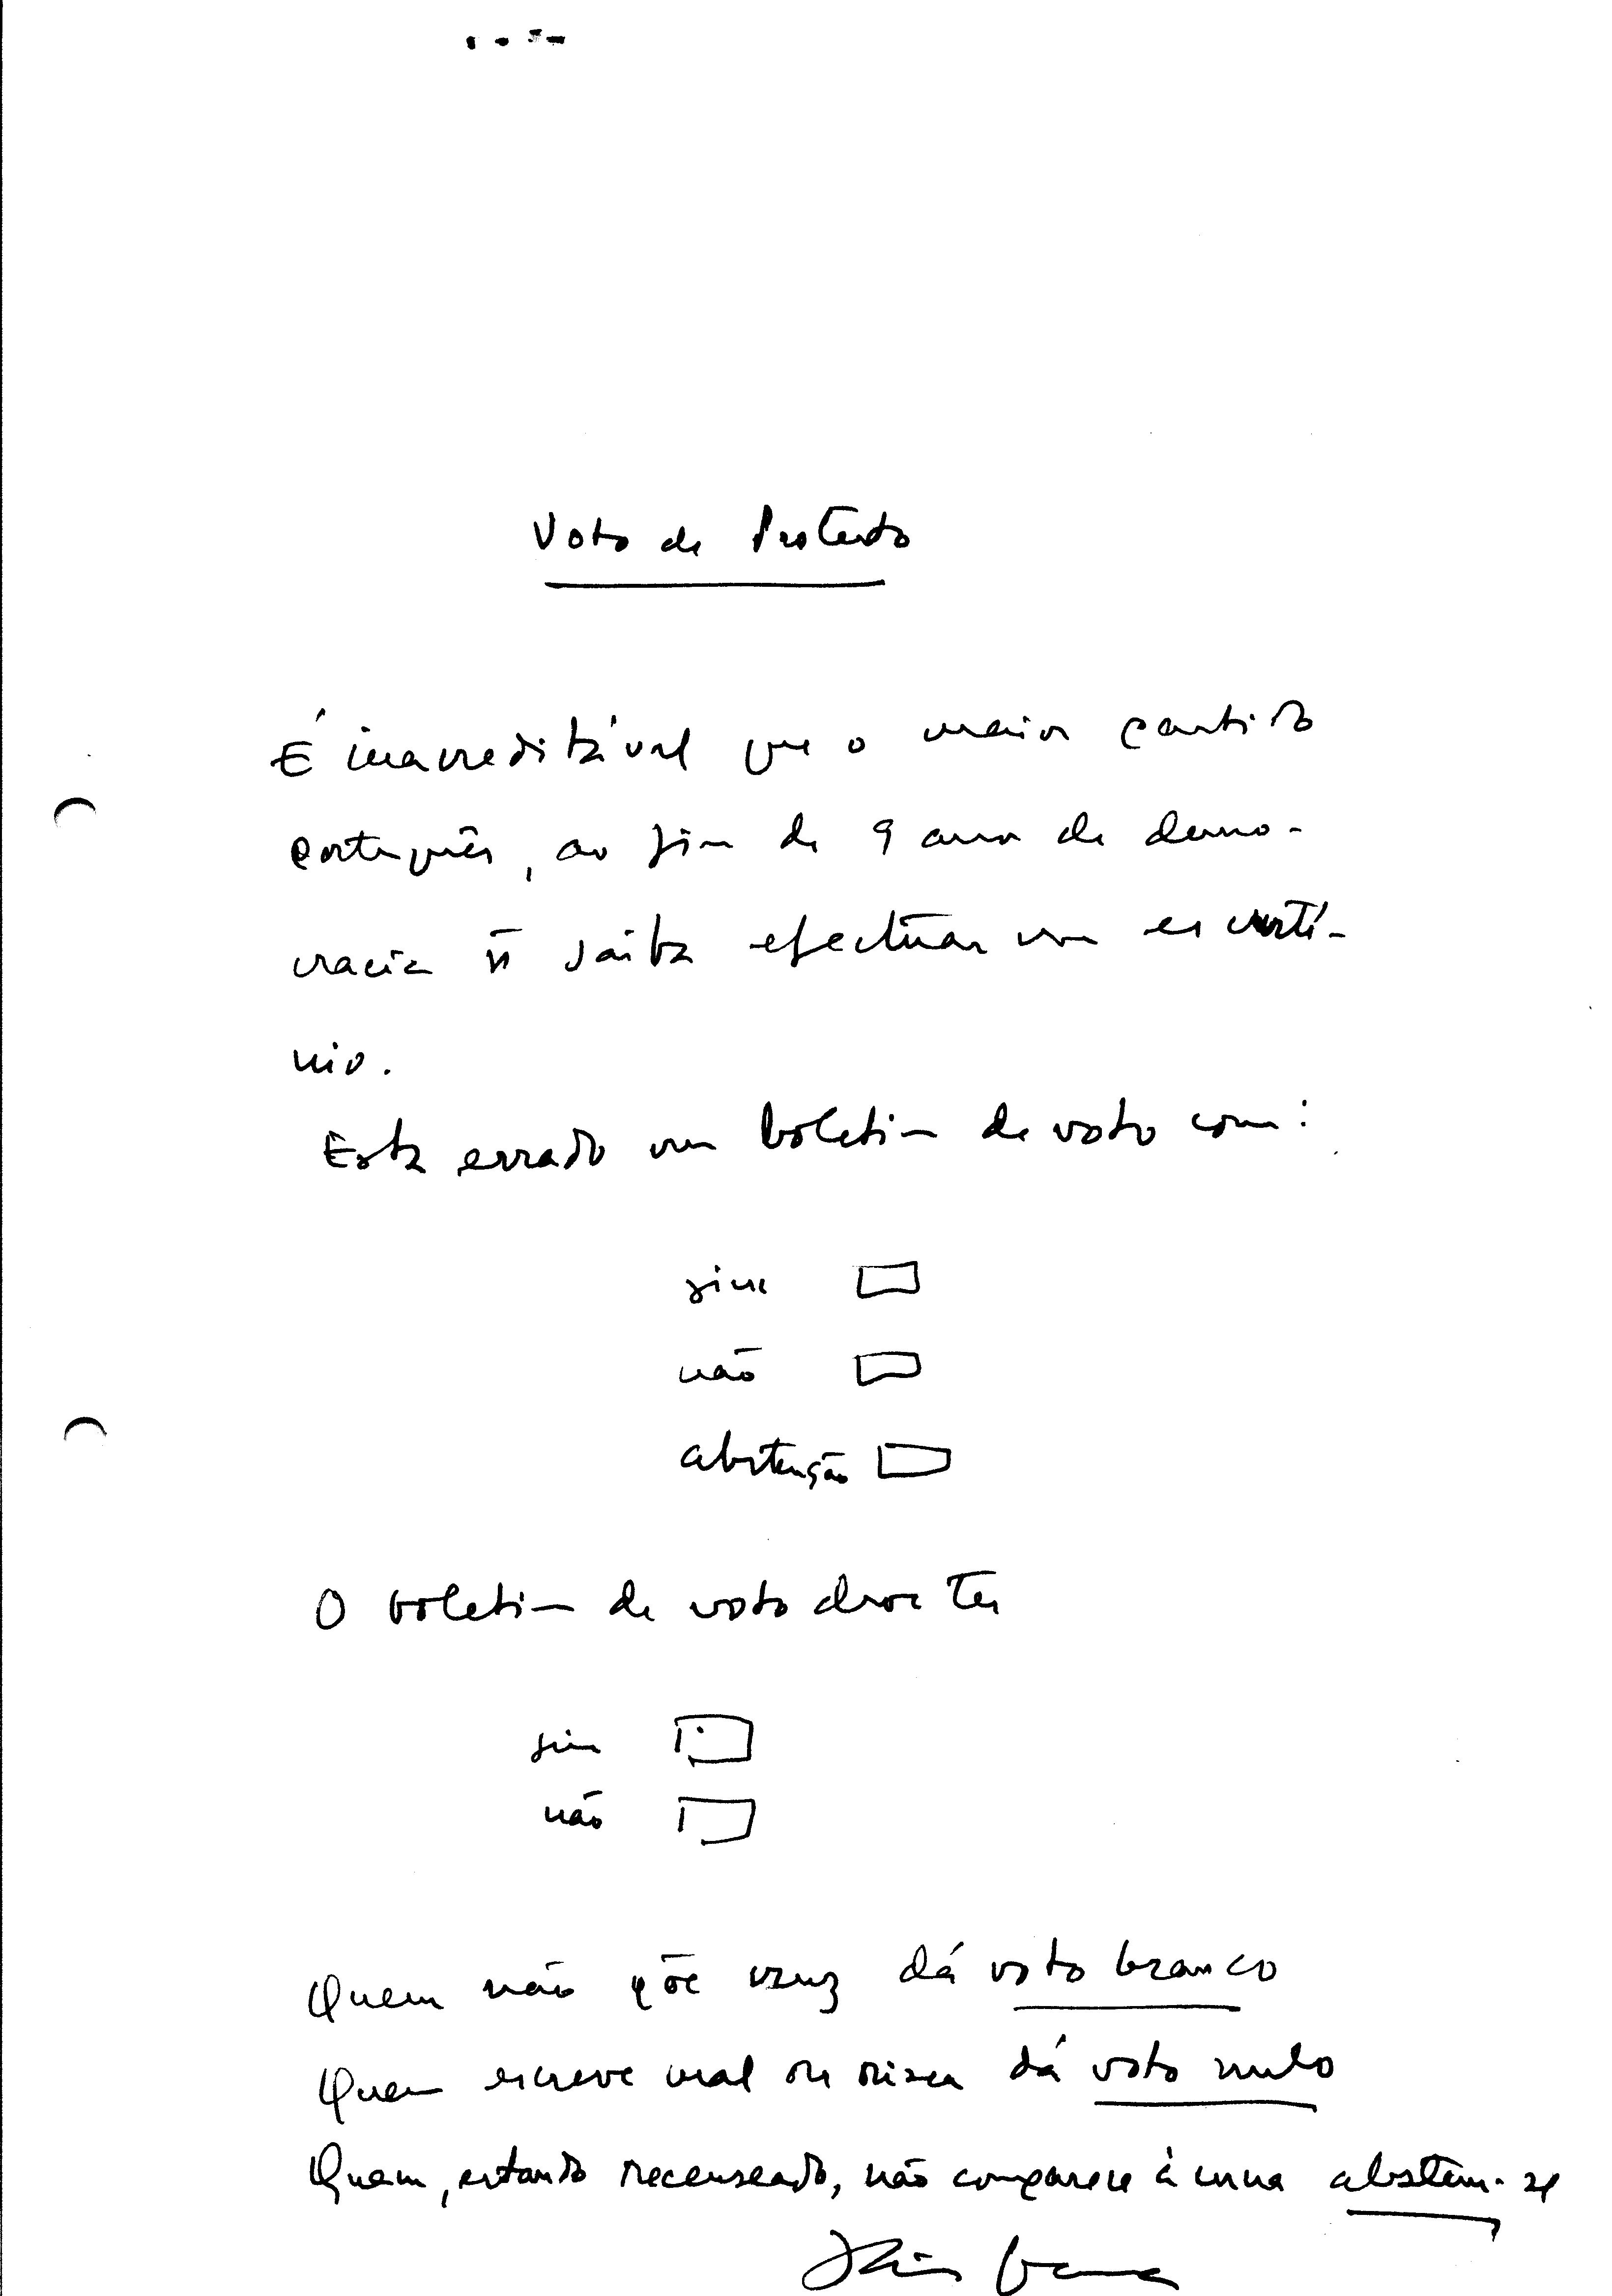 Voto de Protesto
É inacreditável que o maior partido
português, ao fim de 9 anos de demo-
cracia ñ saiba efectuar um escrutí-
nio.
Está errado um boletim de voto com:
sim
não
abstenção
O boletim de voto deve ter
sim
não
Quem não põe cruz dá voto branco
Quem escreve mal ou risca dá voto nulo
Quem, estando recenseado, não comparece à urna abstém-se